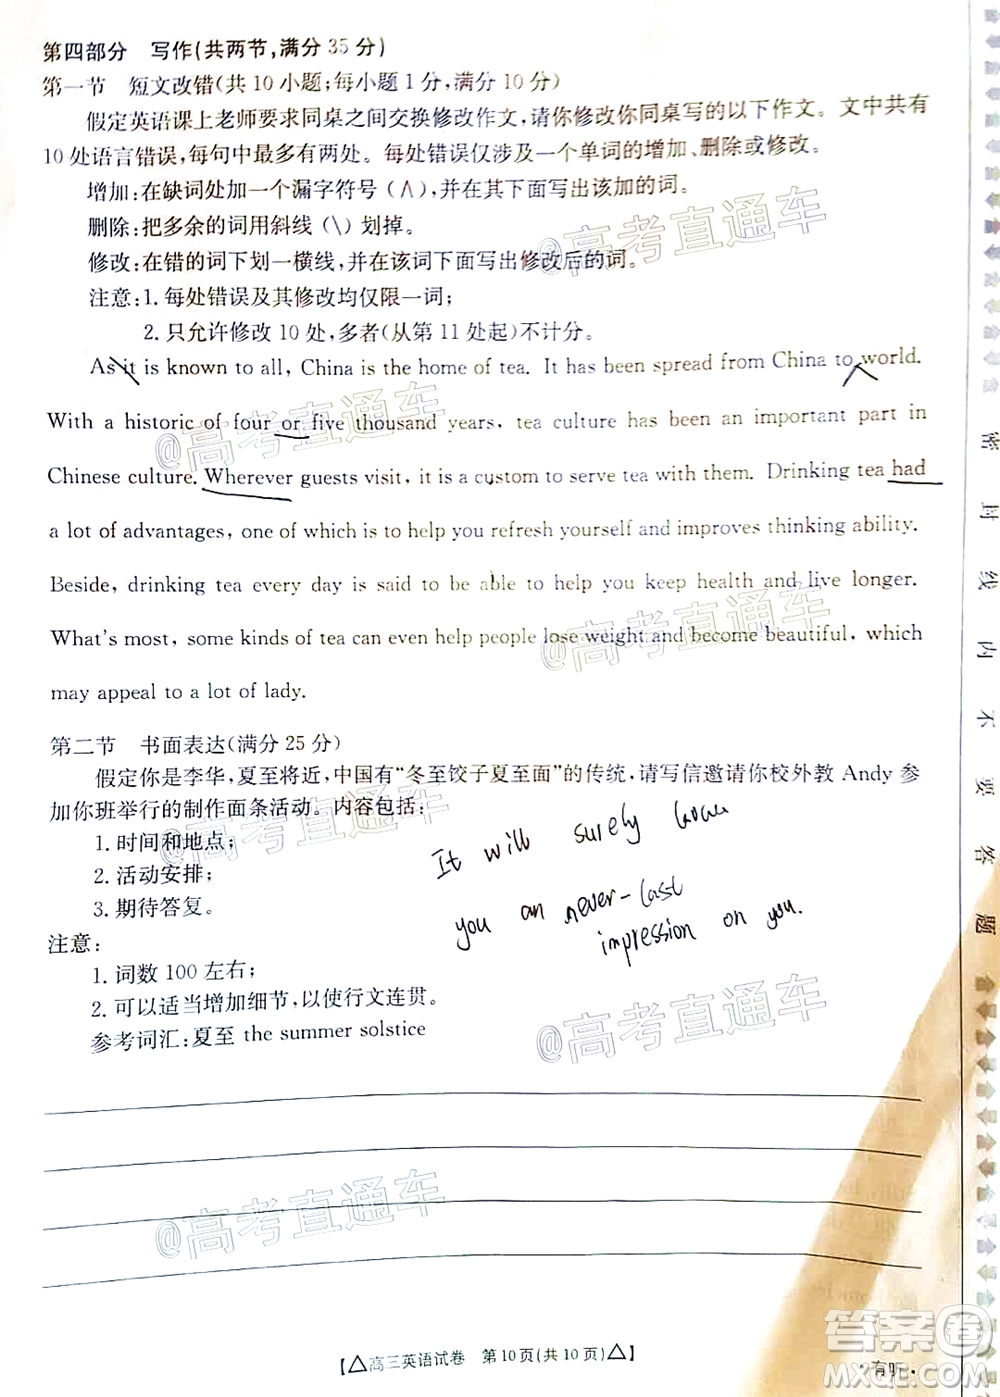 第四部分 写作(共两节,满分 35 分)
第一节 短文改错(共 10 小题;每小题 1 分,满分 10 分)
假定英语课上老师要求同桌之间交换修改作文,请你修改你同桌写的以下作文。文中共有
10 处语言错误,每句中最多有两处。每处错误仅涉及一个单词的增加、删除或修改。
增加:在缺词处加一个漏字符号(∧),并在其下面写出该加的词。
删除:把多余的词用斜线(\)划掉。
修改:在错的词下划一横线,并在该词下面写出修改后的词。
注意:1. 每处错误及其修改均仅限一词;
2. 只允许修改 10 处,多者(从第 11 处起)不计分。
As it is known to all, China is the home of tea. It has been spread from China to world.
With a historic of four or five thousand years, tea culture has been an important part in
Chinese culture. Wherever guests visit, it is a custom to serve tea with them. Drinking tea had
a lot of advantages, one of which is to help you refresh yourself and improves thinking ability.
Beside, drinking tea every day is said to be able to help you keep health and live longer.
What's most, some kinds of tea can even help people lose weight and become beautiful, which
may appeal to a lot of lady.
第二节 书面表达(满分 25 分)
假定你是李华,夏至将近,中国有“冬至饺子夏至面”的传统,请写信邀请你校外教 Andy 参
加你班举行的制作面条活动。内容包括:
1. 时间和地点;
2. 活动安排;
3. 期待答复。
It will surely have
you an never-last
impression on you.
注意:
1. 词数 100 左右;
2. 可以适当增加细节,以使行文连贯。
参考词汇:夏至 the summer solstice
【△高三英语试卷 第 10 页(共 10 页)△】
·有听·
密封线内不要答题
@高考直通车
@高考直通车
@高考直通车
@高考直通车
@高考直通车
@高考直通车
答案圈